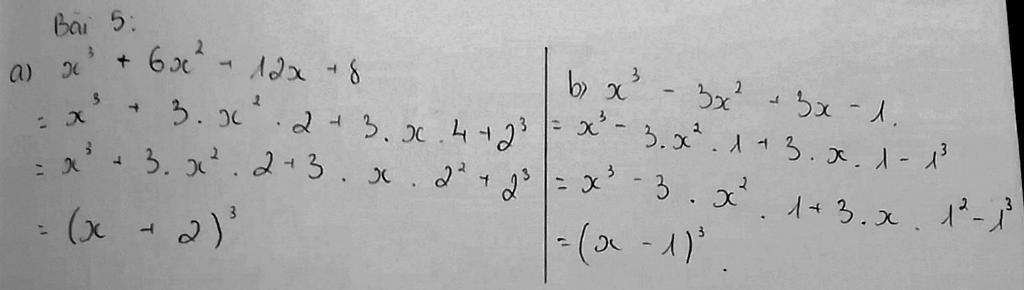 Bài 5:
a) x³ + 6x² + 12x + 8
= x³ + 3. x² . 2 + 3. x . 4 + 2³
= x³ + 3. x² . 2 + 3 . x . 2² + 2³
= (x + 2)³
b) x³ - 3x² + 3x - 1.
= x³ - 3. x² . 1 + 3. x. 1 - 1³
= x³ - 3 . x² . 1 + 3. x . 1² - 1³
= (x - 1)³.